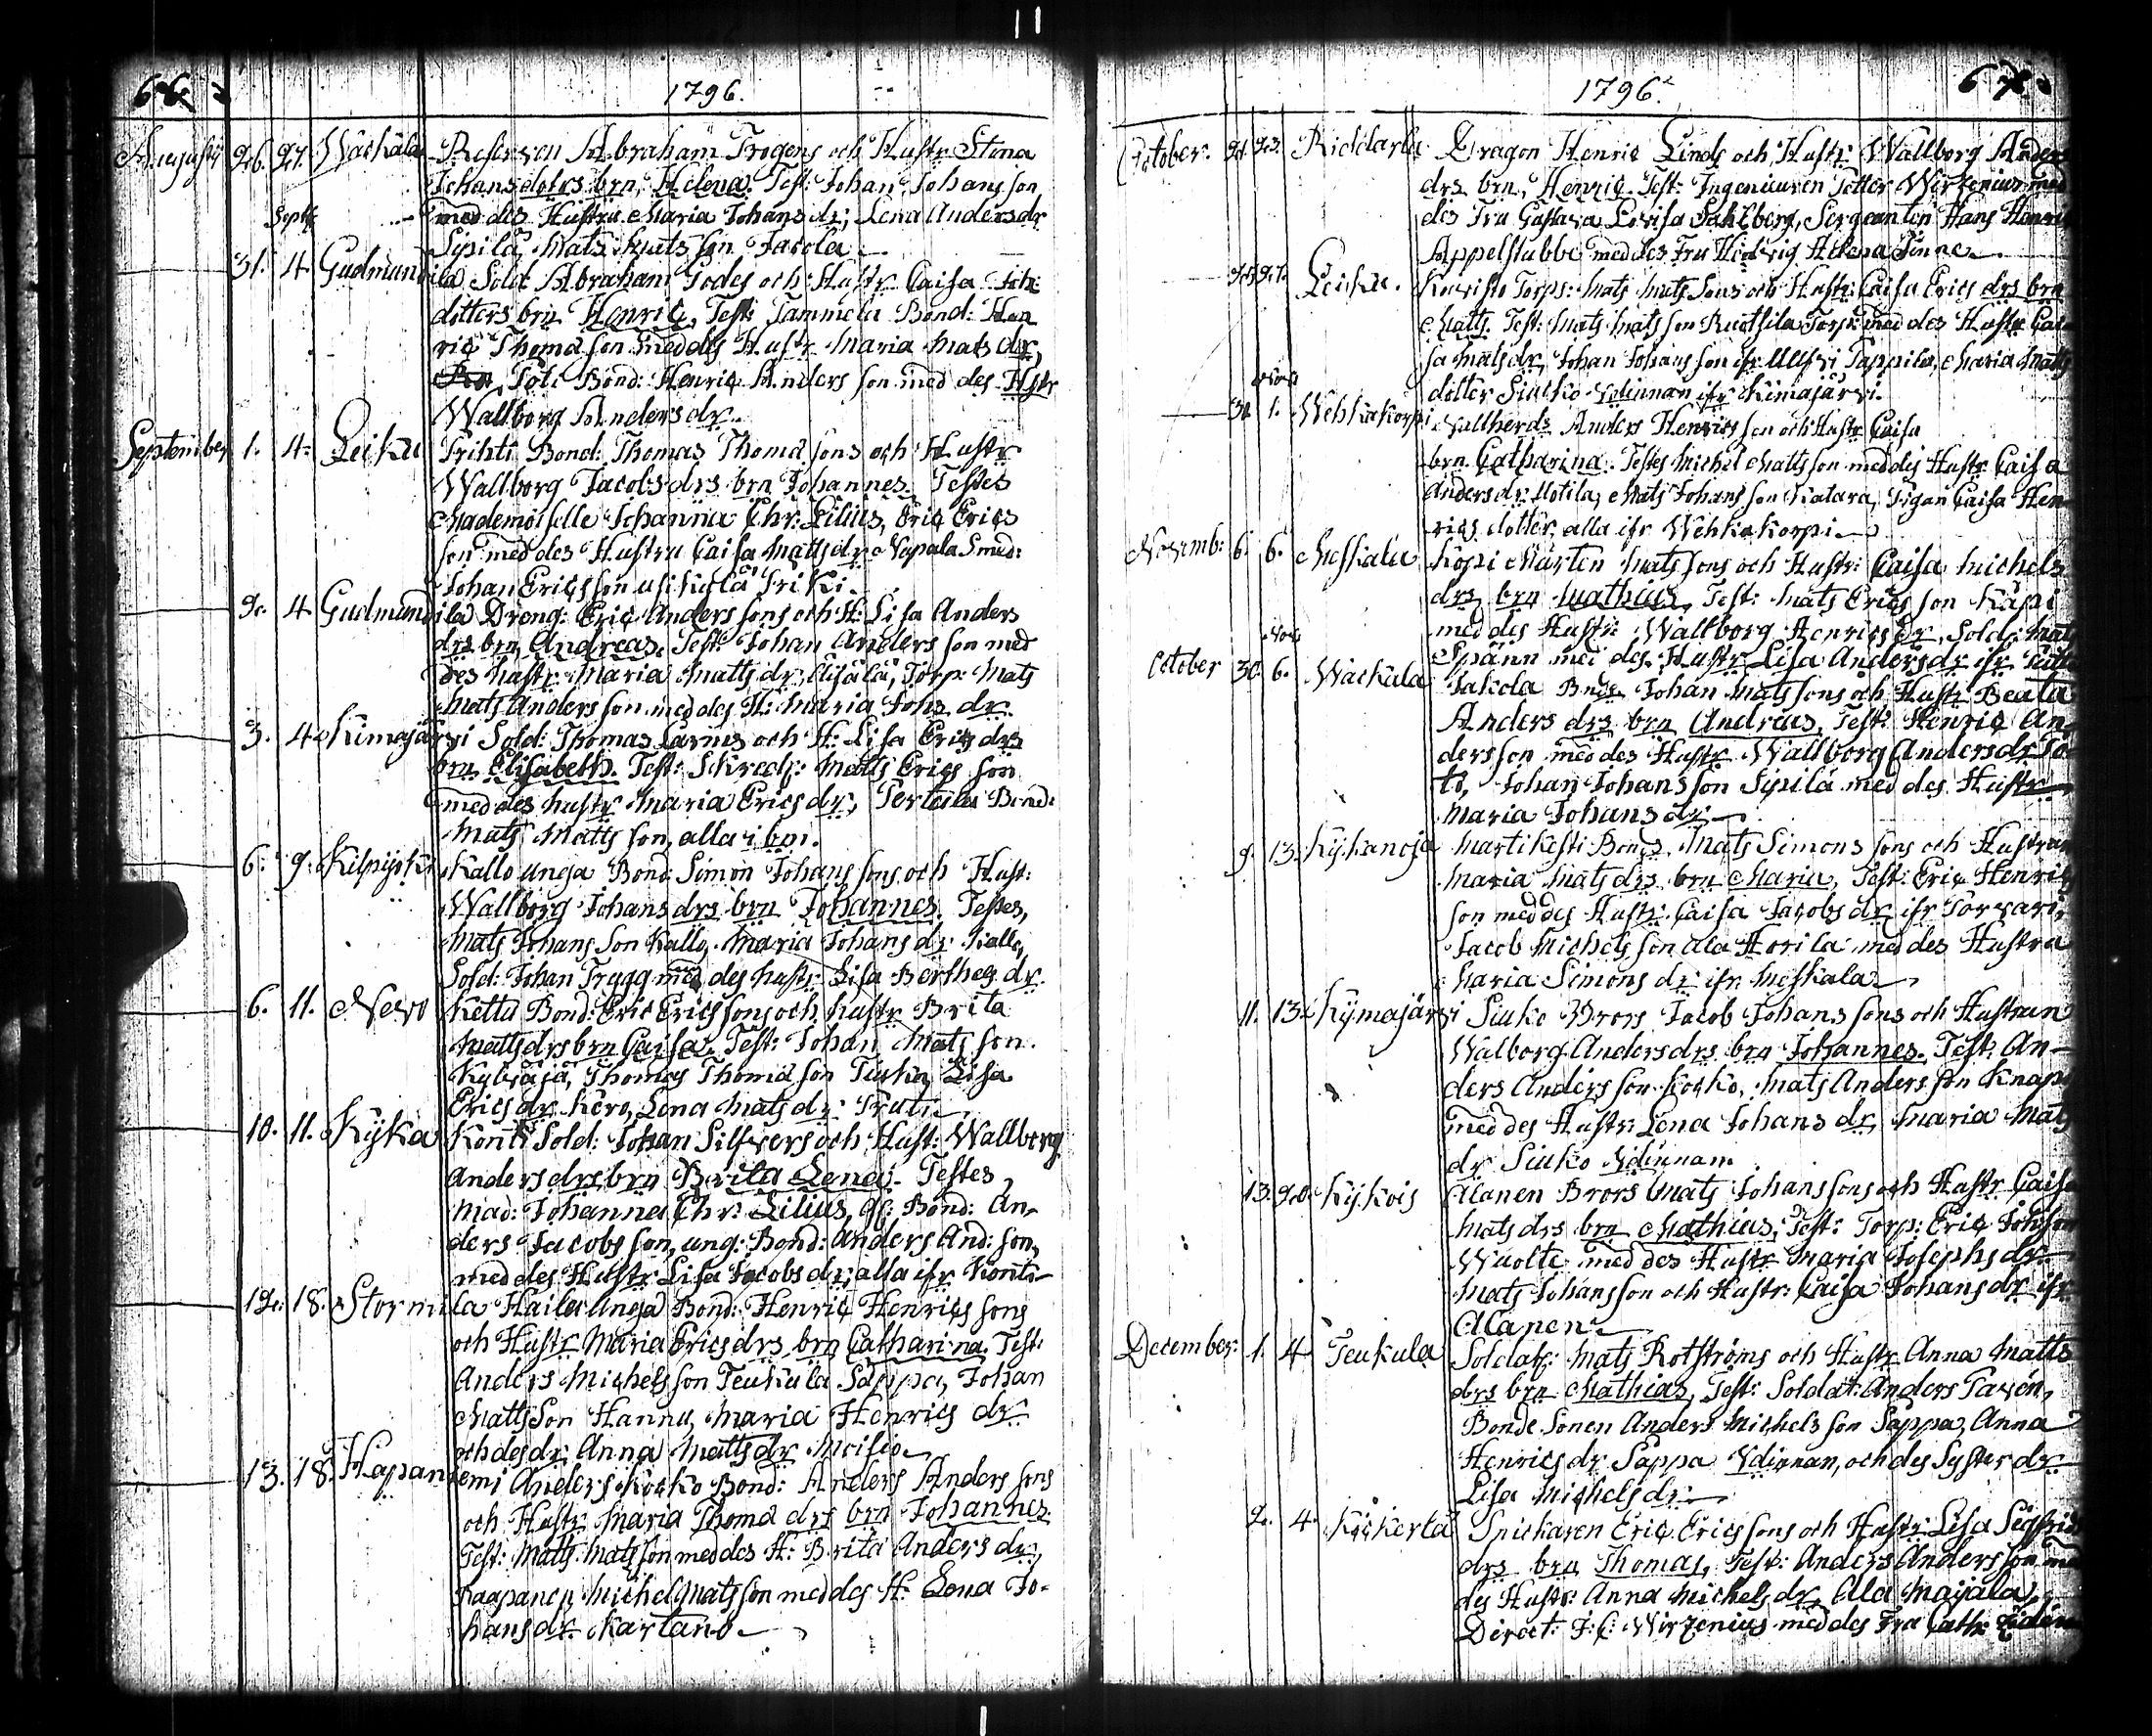 66
1796.
Augusti 26. 27. Wäckälä Reserven Abraham Trogens och Hustr. Stina
Johans doters brn, Helena. Test: Johan Johans son
Septr med des Hustru Maria Johans dr; Lena Anders dr
Sipilä, Mats Mats son Jacola
31. 4. Gudmundila Sold: Abraham Godes och Hustr Caisa Joh:
dotters brn Henric, Test: Tammela Bond: Hen
ric Thoma son med des Hustr. Maria Mats dr,
Toti Bond: Henric Anders son med des Hstr
Wallborg Anders dr.
September 1. 4. Leiku Prihti Bond: Thomas Thoma sons och Hustr
Wallborg Jacobs drs brn Johannes, Testes
Mademoiselle Johanna Chr: Lilius, Eric Erics
son med des Hustru Caisa Matts dr Napala Smed:
Johan Erics son Usikylä Friki.
2. 4 Gudmundila Dreng: Eric Anders sons och H: Lisa Anders
drs brn Andreas. Test: Johan Anders son med
des hustr. Maria Matts dr, Alisälä, Torp: Mats
Mats Anders son med des H: Maria Johs dr.
3. 4 Kimajärvi Sold: Thomas Larms och H: Lisa Erics drs
brn Elisabeth. Test: Skredr: Matts Erics son
med des hustr. Maria Erics dr, Pertula Bond:
Mats Matts son, alla i bÿi.
6. 9. Kilpijoki Kallo unga Bond Simon Johans sons och Hust:
Wallborg Johans drs brn Johannes. Testes,
Mats Johans son Kallo, Maria Johans dr Kallo,
Sold: Johan Trygg med des hustr. Lisa Berthels dr.
6. 11. Newo Kettu Bond: Eric Erics sons och hustr Brita
Matts drs brn Caisa. Test: Johan Mats son.
Kyläjä, Thomas Thoma son Turka, Lisa
Erics dr Kero, Lena Mats dr: Pruti
10. 11. Kÿkä Konti Sold: Johan Silfvers och Hust: Wallborg
Anders drs brn Brita Lena. Testes,
Mad: Johanna Chr: Lilius, gl: Bond: An-
ders Jacobs son, ung: Bond: Anders And: son,
med des Hustr Lisa Jacobs dr; alla ifr Konti
12. 18. Stormila Haila Unga Bond: Henric Henrics sons
och Hustr Maria Erics drs brn Catharina. Test:
Anders Michels son Teukula Säppä, Johan
Matts Son Hannu, Maria Henrics dr
och des dr: Anna Matts dr Moisio
13. 18. Hapaniemi Anders Kocko Bond: Anders Anders sons
och Hustr. Maria Thoma drs brn Johannes.
Test: Matts Mats son med des H: Brita Anders dr,
Raapanen, Michel Mats son med des H: Lena Jo-
hans dr. Kartano
67
1796.
October. 21 23. Riddarla Dragon Henric Linds och Hustr Wallborg Anders
drs brn, Henric. Test: Ingenieuren Petter Wirzenius med
des Fru Gustava Lovisa Sahlberg, Sergeanten Hans Henric
Appelstubbe med des Fru Hedvig Helena Finne
Leiku. Kouristo Torps: Mats Mats Sons och Hustr: Caisa Erics drs brn
Matts. Test: Mats Mats son Ruotsila Torp: med des Hustr Cai
sa Mats dr, Johan Johans son ifr Ullfvi Pappila, Maria Matts
dotter Siuko Qdinnan ifr Kimajärvi.
30 1. Wehkakorpi Wallherds Anders Henrics son och Hustr Caisa
brn Catharina. Testes Michel Matts son med des Hustr Caisa
Anders dr Motila, Mats Johans son Katara, Pigan Caisa Hen-
rics dotter, alla ifr Wehkakorpi
Novemb: 6. 6. Meskala Köpi Mårten Mats sons och Hustr: Caisa Michels
drs brn Mathias, Test: Mats Erics son Käpi
med des Hustr: Wallborg Henrics dr, Sold: Mats
Spänn med des Hustr Lisa Anders dr ifr
October 30 6. Wäckälä Jakola Bnds Johan Mats sons och Hustr Beata
Anders drs brn Andreas, Test: Henric An-
ders son med des Hustr Wallborg Anders dr To-
ti, Johan Johans son Sipilä med des Hustr
Maria Johans dr
9. 13. Kÿkanoja Martikesti Bonds Mats Simons sons och Hustrun
Maria Mats drs brn Maria, Test: Eric Henrics
son med des Hustr: Caisa Jacobs dr ifr Torvari,
Jacob Michels son ala Horila med des Hustru
Maria Simons dr ifr Meskala
11. 13. Kÿmajärvi Siuko Brors Jacob Johans sons och Hustrun
Walborg Anders drs brn Johannes. Test: An-
ders Anders son Kocko, Mats Anders son Knap
med des Hustr: Lena Johans dr, Maria Mats
dr Siuko Qdinnam
13. 20. Kÿkois Alanen Brors Mats Johans sons och Hustr Caisa
Mats drs brn Mathias; Test: Torp: Eric Johs son
Wuolte med des Hustr Maria Josephs dr
Mats Johans son och Hustr: Caisa Johans dr ifr
Alanen
December. 1. 4. Teukula Soldats: Mats Rotströms och Hustr Anna Matts
drs brn Mathias, Test: Soldat: Anders Pavén,
Bonde Sonen Anders Michels son Säppä, Anna
Henrics dr Säppä Qdinnan, och des Syster dr
Lisa Michels dr
2. 4. Kÿckerlä Snickaren Eric Erics sons och Hustr: Lisa Segfrids
drs brn Thomas, Test: Anders Anders son med
des Hustr: Anna Michels dr Ala Maijala,
Direct: J: C: Wirzenius med des Fru Cath: